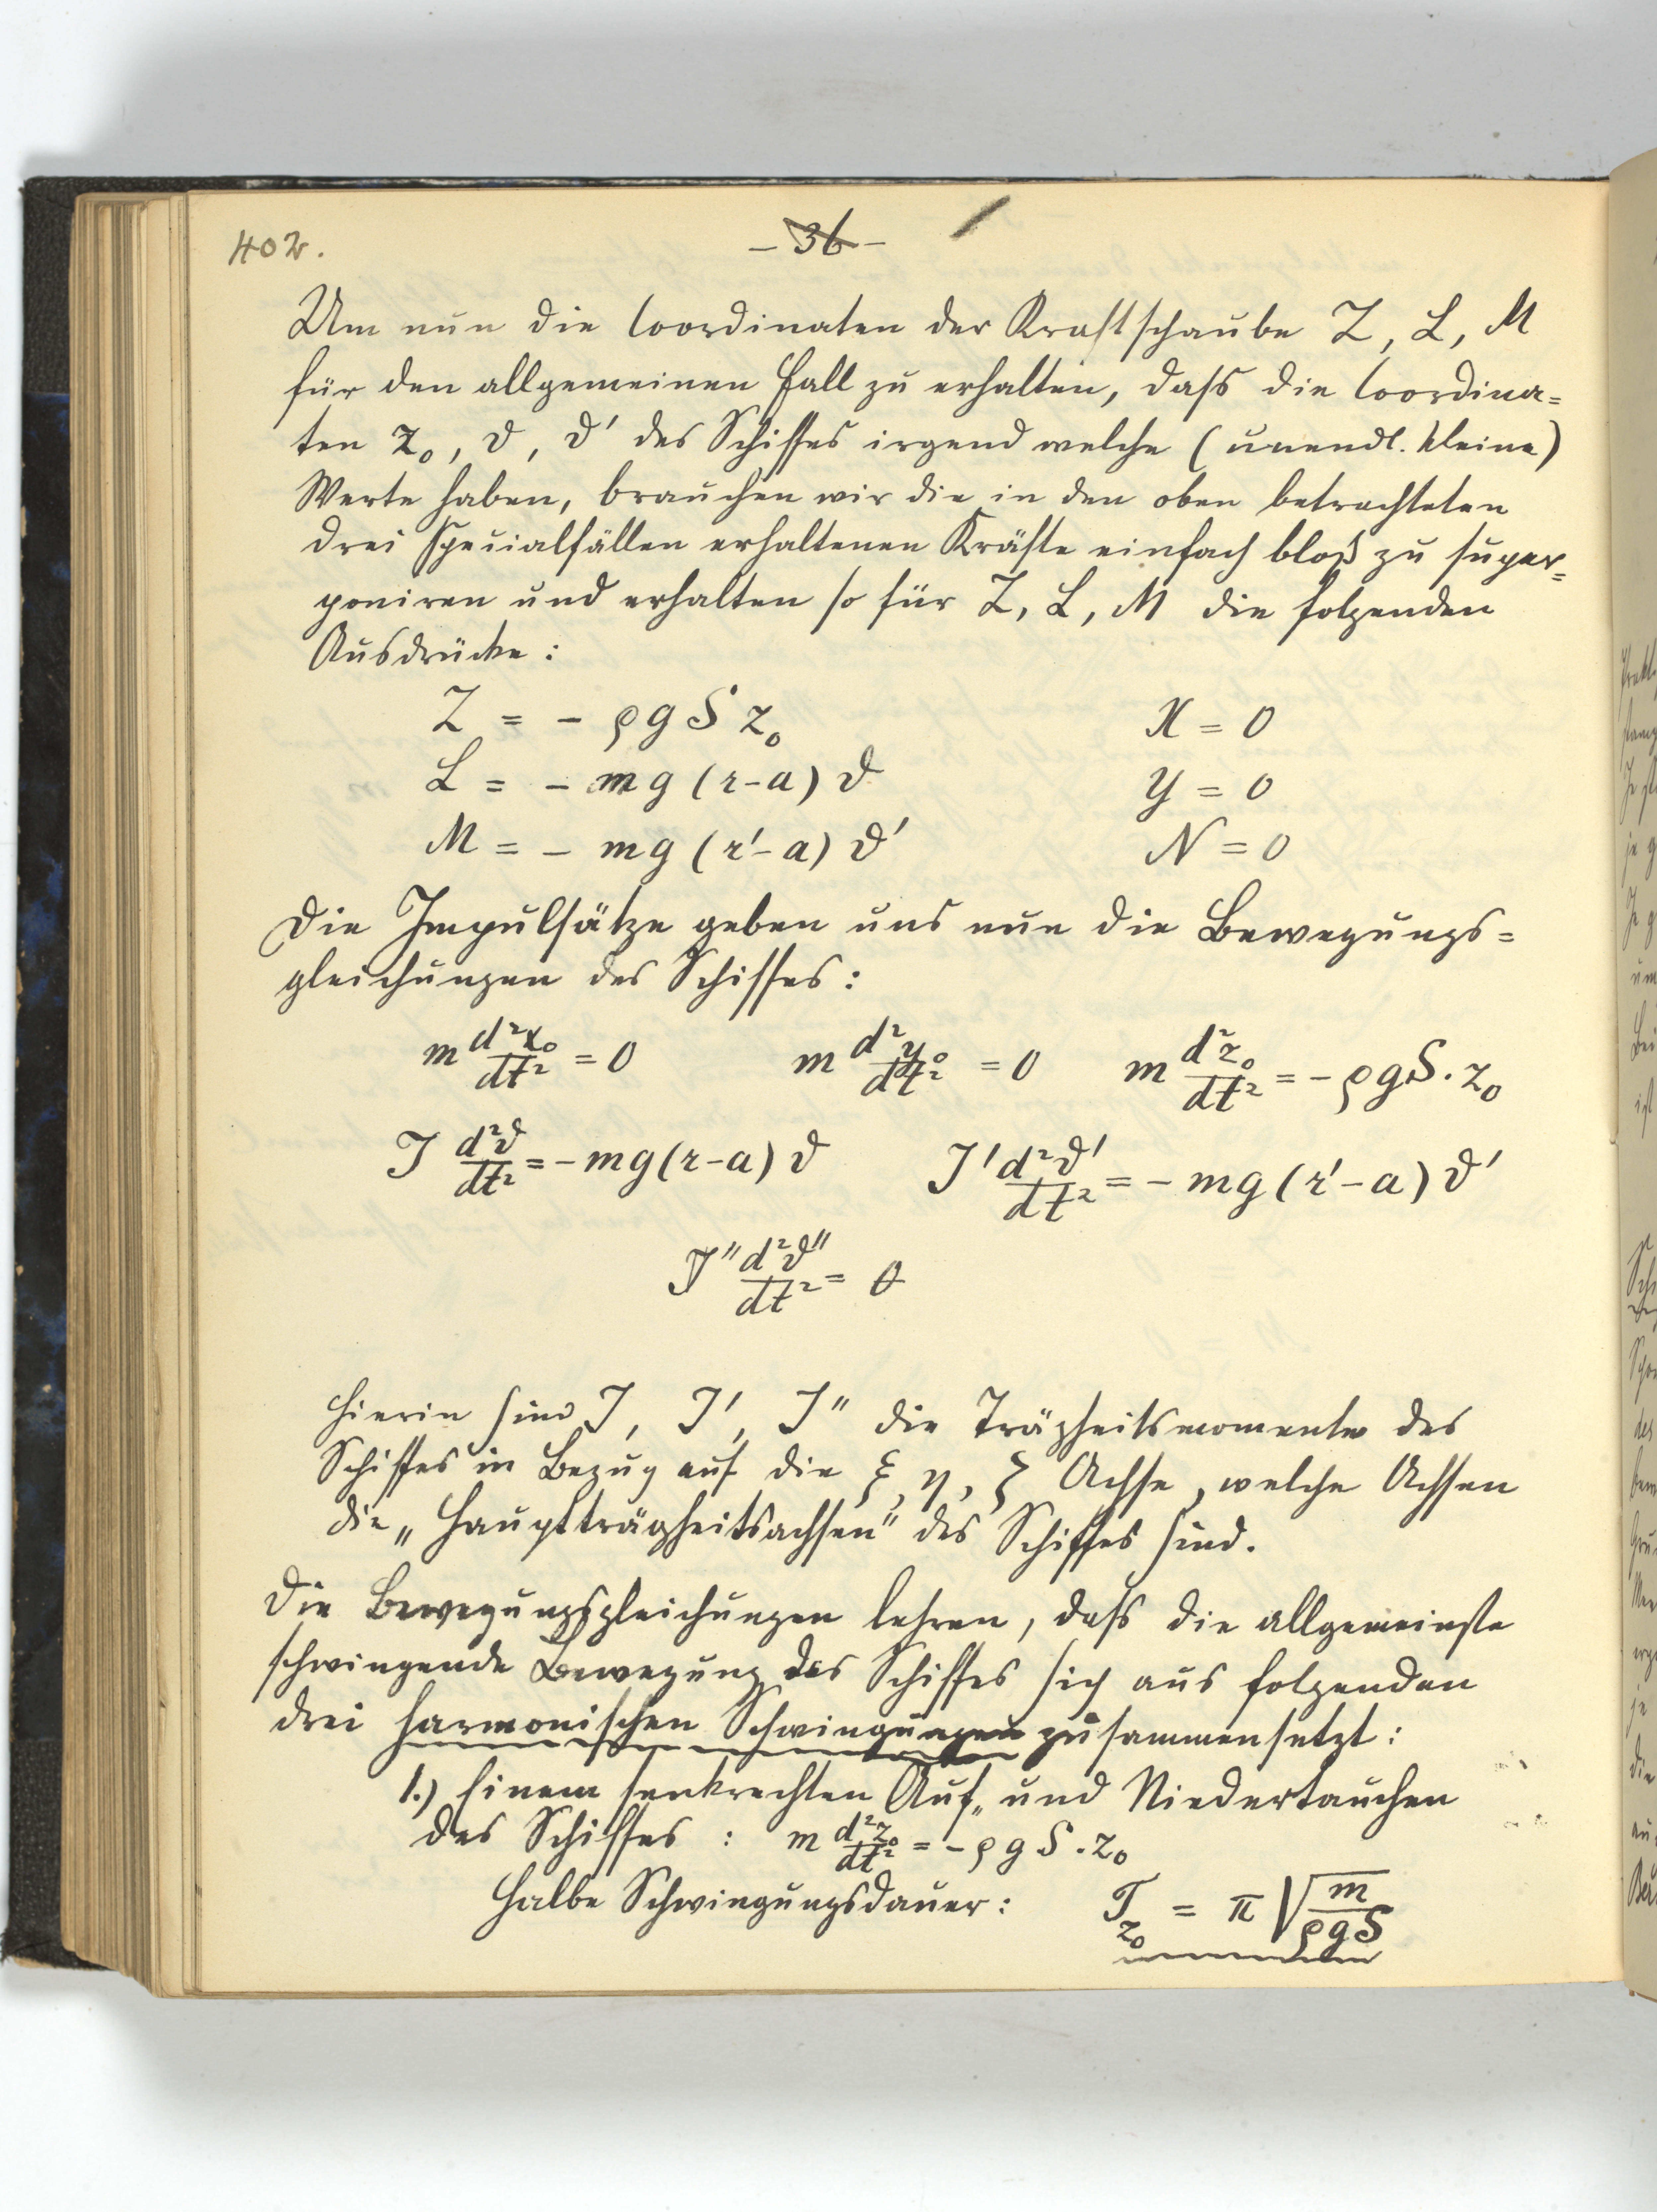 402.
- 36 -
Um nun die Coordinaten der Kraftschaube Z, L, M
für den allgemeinen Fall zu erhalten, dass die Coordina=
ten z₀, ϑ, ϑ′ des Schiffes irgend welche (unendl. kleine)
Werte haben, brauchen wir die in den oben betrachteten
drei Specialfällen erhaltenen Kräfte einfach bloß zu super=
poniren und erhalten so für Z, L, M die folgenden
Ausdrücke:
Z = - ρgS z₀ X = 0
L = - mg (r-a) ϑ Y = 0
M = - mg (r′-a) ϑ′ N = 0
Die Impulsätze geben uns nun die Bewegungs=
gleichungen des Schiffes:
m d²x₀/dt² = 0 m d²y₀/dt² = 0 m d²z₀/dt² = - ρgS. z₀
J d²ϑ/dt² = - mg(r-a) ϑ J′ d²ϑ′/dt² = - mg (r′-a) ϑ′
J″ d²ϑ″/dt² = 0
Hierin sind J, J′, J″ die Trägheitsmomente des
Schiffes in Bezug auf die ξ, η, ζ Achse, welche Achsen
die „Hauptträgheitsachsen" des Schiffes sind.
Die Bewegungsgleichungen lehren, dass die allgemeinste
schwingende Bewegung des Schiffes sich aus folgenden
drei harmonischen Schwingungen zusammensetzt:
1.) Einem senkrechten Auf„ und Niedertauchen
des Schiffes : m d²z₀/dt² = - ρgS. z₀
Halbe Schwingungsdauer: T_z₀ = π √(m/ρgS)